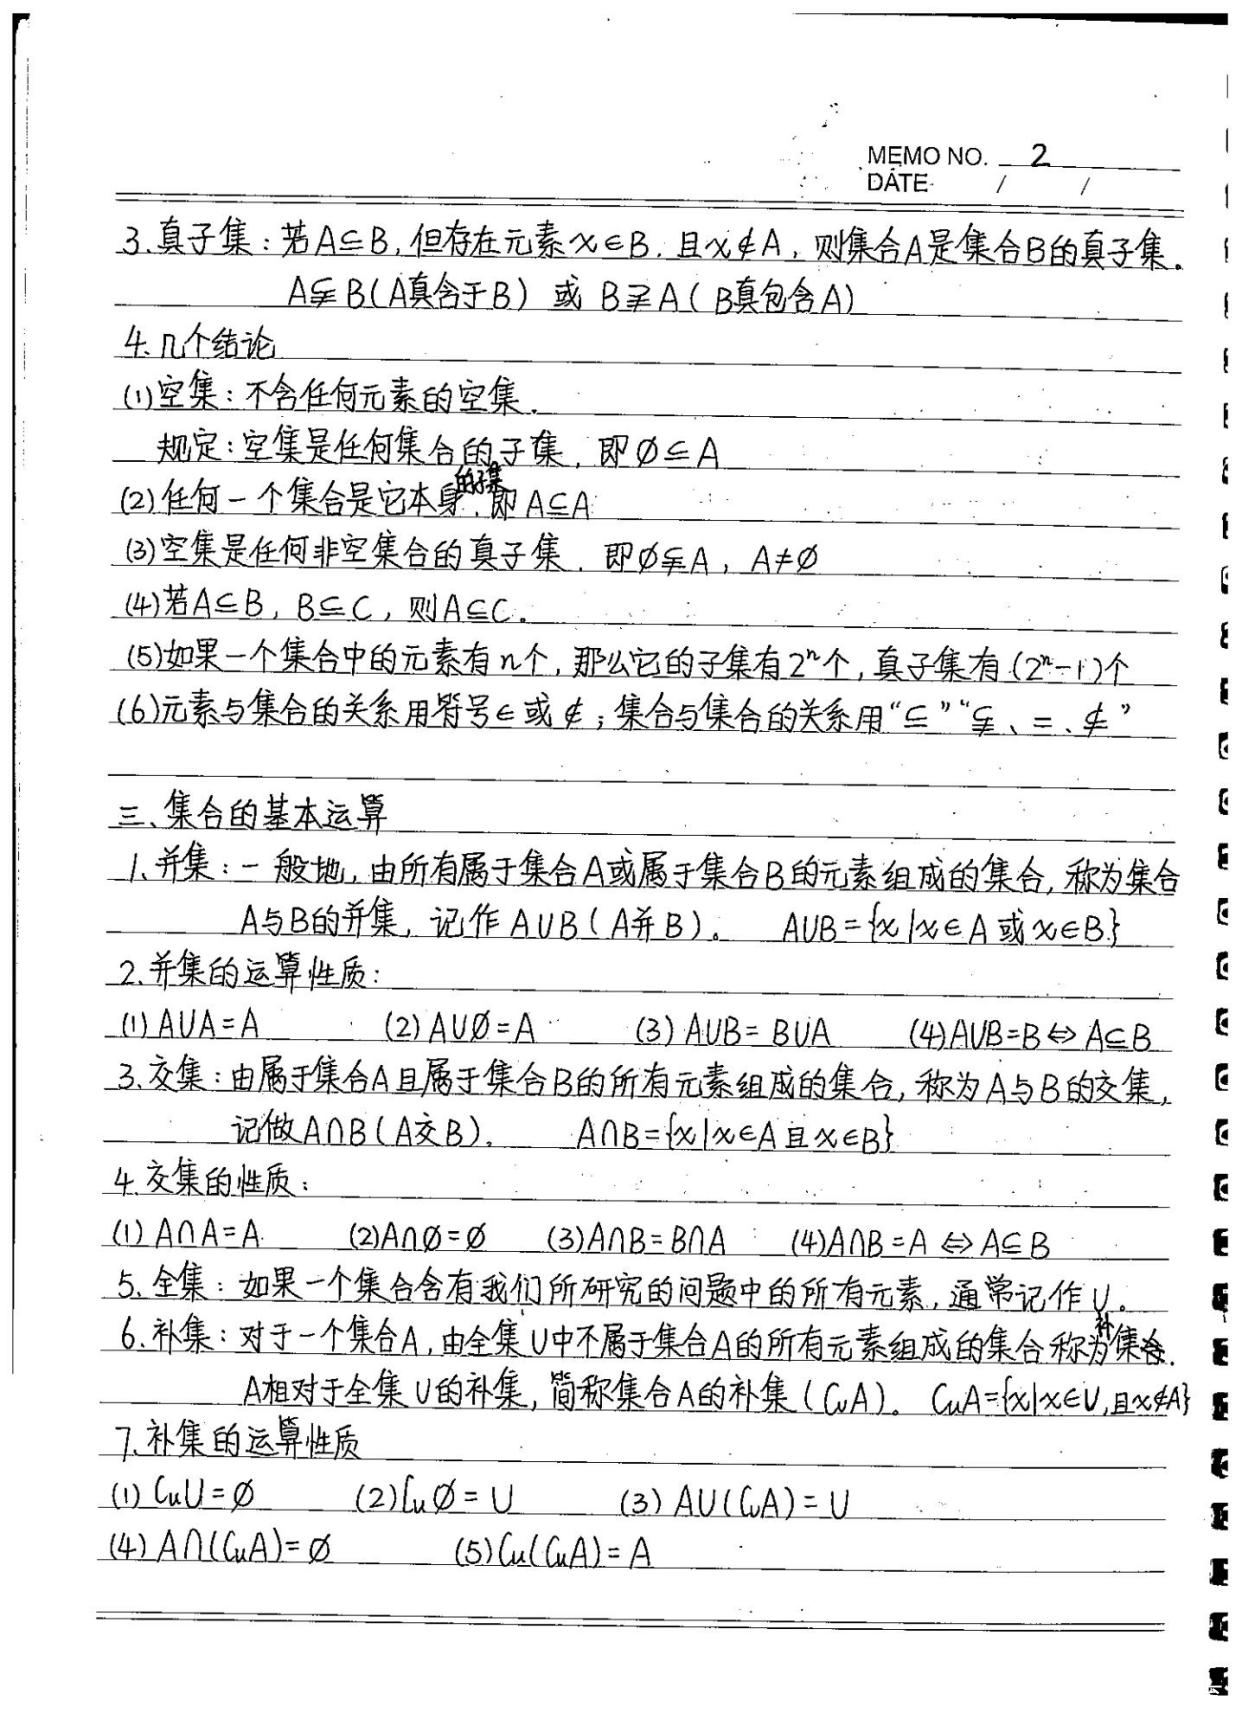 MEMO NO. 2
DATE / /
3.真子集：若A⊆B,但存在元素x∈B.且x∉A，则集合A是集合B的真子集。
A⫋B(A真含于B) 或 B⫌A(B真包含A)
4.几个结论
(1)空集：不含任何元素的空集.
规定：空集是任何集合的子集，即∅⊆A
(2)任何一个集合是它本身的子集.即A⊆A
(3)空集是任何非空集合的真子集.即∅⫋A，A≠∅
(4)若A⊆B，B⊆C，则A⊆C。
(5)如果一个集合中的元素有n个,那么它的子集有2ⁿ个,真子集有(2ⁿ-1)个
(6)元素与集合的关系用符号∈或∉；集合与集合的关系用“⊆”“⫋、=、⊄”
三、集合的基本运算
1.并集：一般地,由所有属于集合A或属于集合B的元素组成的集合,称为集合
A与B的并集，记作A∪B(A并B)。 A∪B={x|x∈A或x∈B}
2.并集的运算性质：
(1)A∪A=A (2)A∪∅=A (3)A∪B=B∪A (4)A∪B=B⇔A⊆B
3.交集：由属于集合A且属于集合B的所有元素组成的集合,称为A与B的交集,
记做A∩B(A交B). A∩B={x|x∈A且x∈B}
4.交集的性质：
(1)A∩A=A (2)A∩∅=∅ (3)A∩B=B∩A (4)A∩B=A⇔A⊆B
5.全集：如果一个集合含有我们所研究的问题中的所有元素,通常记作U。
6.补集：对于一个集合A,由全集U中不属于集合A的所有元素组成的集合称为补集合.
A相对于全集U的补集,简称集合A的补集(∁ᵤA)。 ∁ᵤA={x|x∈U,且x∉A}
7.补集的运算性质
(1)∁ᵤU=∅ (2)∁ᵤ∅=U (3)A∪(∁ᵤA)=U
(4)A∩(∁ᵤA)=∅ (5)∁ᵤ(∁ᵤA)=A